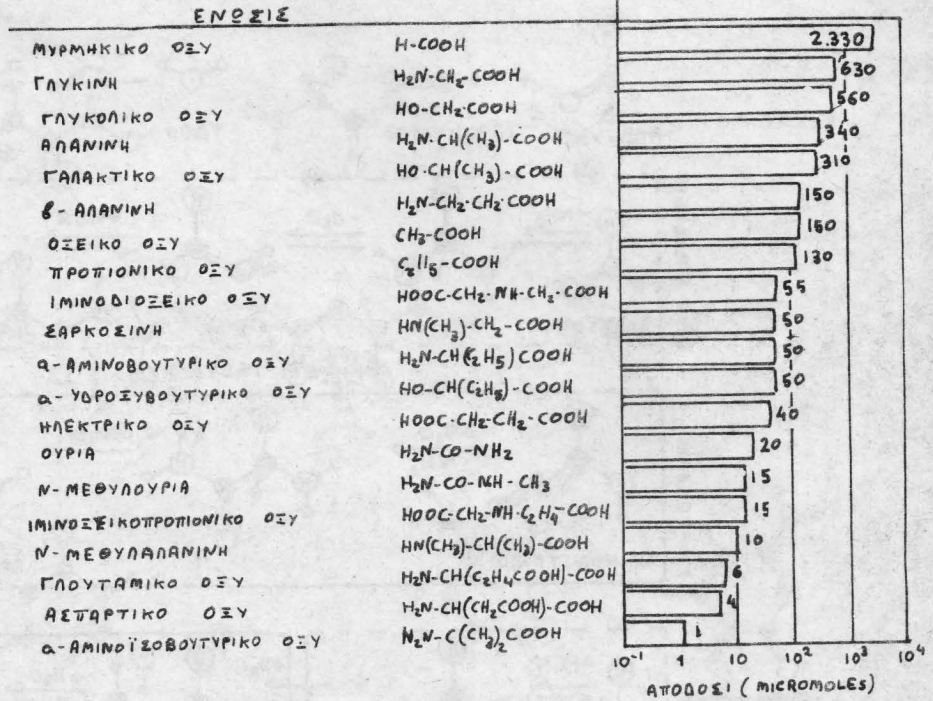 ΕΝΩΣΙΣ
ΜΥΡΜΗΚΙΚΟ ΟΞΥ H-COOH 2.330
ΓΛΥΚΙΝΗ H₂N-CH₂-COOH 630
ΓΛΥΚΟΛΙΚΟ ΟΞΥ HO-CH₂-COOH 560
ΑΛΑΝΙΝΗ H₂N-CH(CH₃)-COOH 340
ΓΑΛΑΚΤΙΚΟ ΟΞΥ HO-CH(CH₃)-COOH 310
β-ΑΛΑΝΙΝΗ H₂N-CH₂-CH₂-COOH 150
ΟΞΕΙΚΟ ΟΞΥ CH₃-COOH 150
ΠΡΟΠΙΟΝΙΚΟ ΟΞΥ C₂H₅-COOH 130
ΙΜΙΝΟΔΙΟΞΕΙΚΟ ΟΞΥ HOOC-CH₂-NH-CH₂-COOH 55
ΣΑΡΚΟΣΙΝΗ HN(CH₃)-CH₂-COOH 50
α-ΑΜΙΝΟΒΟΥΤΥΡΙΚΟ ΟΞΥ H₂N-CH(C₂H₅)COOH 50
α-ΥΔΡΟΞΥΒΟΥΤΥΡΙΚΟ ΟΞΥ HO-CH(C₂H₅)-COOH 50
ΗΛΕΚΤΡΙΚΟ ΟΞΥ HOOC-CH₂-CH₂-COOH 40
ΟΥΡΙΑ H₂N-CO-NH₂ 20
Ν-ΜΕΘΥΛΟΥΡΙΑ H₂N-CO-NH-CH₃ 15
ΙΜΙΝΟΞΕΙΚΟΠΡΟΠΙΟΝΙΚΟ ΟΞΥ HOOC-CH₂-NH-C₂H₄-COOH 15
Ν-ΜΕΘΥΛΑΛΑΝΙΝΗ HN(CH₃)-CH(CH₃)-COOH 10
ΓΛΟΥΤΑΜΙΚΟ ΟΞΥ H₂N-CH(C₂H₄COOH)-COOH 6
ΑΣΠΑΡΤΙΚΟ ΟΞΥ H₂N-CH(CH₂COOH)-COOH 4
α-ΑΜΙΝΟΪΣΟΒΟΥΤΥΡΙΚΟ ΟΞΥ N₂N-C(CH₃)₂COOH 1
10⁻¹ 1 10 10² 10³ 10⁴
ΑΠΟΔΟΣΙ (MICROMOLES)